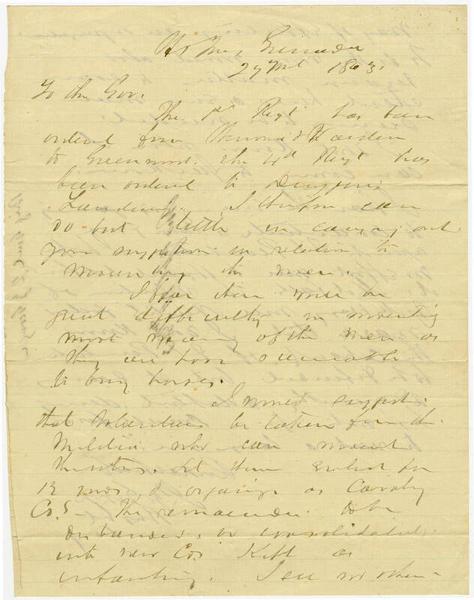 Hd Qrs Grenada
29th 1863.
To the Gov.
The 1st Regt has been
ordered from
to Greenwood. The 4th Regt has
been ordered to
Landing. I therefore can
do but little in carrying out
your suggestion in relation to
mounting the men.
I fear there will be
great difficulty in mounting
most of the men as
they are poor & unable
to buy horses.
I would suggest
that Volunteers be taken from the
Militia who can mount
themselves, let them enlist for
12 mos & organize as Cavalry
Co.s The remainder to be
disbanded or consolidated
into new Cos Kept as
infantry. I see no other